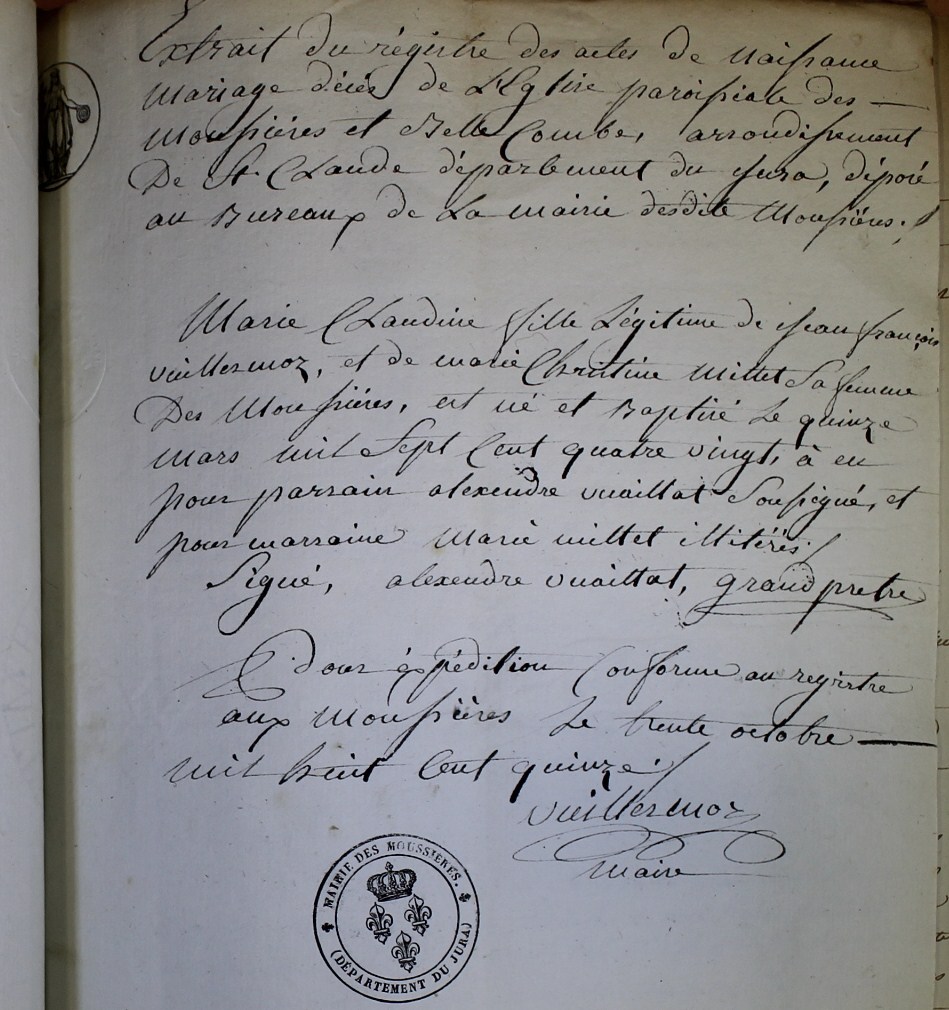 Extrait du régistre des actes de Naissance
Mariage décès de L'Eglise paroissiale des —
Moussières et Belle Combe, arrondissement
De St. Claude département du Jura, déposé
au Bureaux de La mairie desdite Moussières.
Marie Claudine fille Légitime de jean françois
vuillermoz, et de marie Christine Millet Sa femme
Des Moussières, est né et Baptisé Le quinze
Mars mil Sept Cent quatre vingt, à eu
pour parrain alexendre vuaillat Soussigné, et
pour marraine Marie millet illitérés.
Signé, alexendre vuaillat, grand pretre
Pour éxpédition Conforme au registre
aux Moussières Le trente octobre —
mil huit Cent quinze.
vuillermoz
Maire
MAIRIE DES MOUSSIERES.
(DÉPARTEMENT DU JURA)